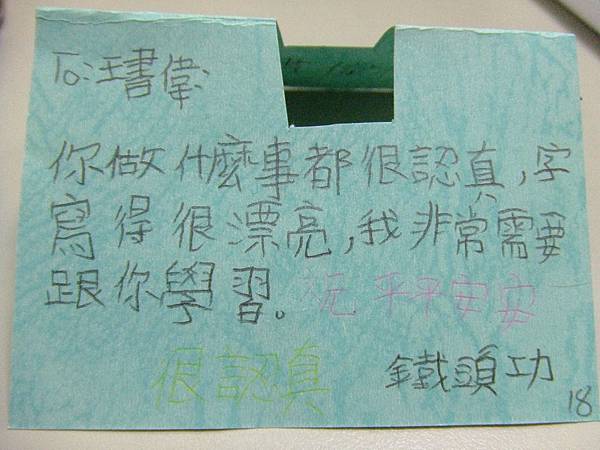 To:王書偉:
你做什麼事都很認真,字
寫得很漂亮,我非常需要
跟你學習。祝平平安安
很認真
鐵頭功
18